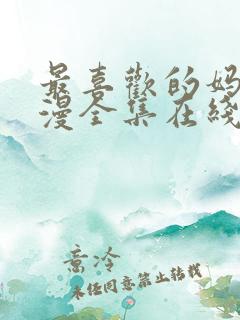 最喜歡的妈
漫全集在綫
高冷
未任同意禁止转载